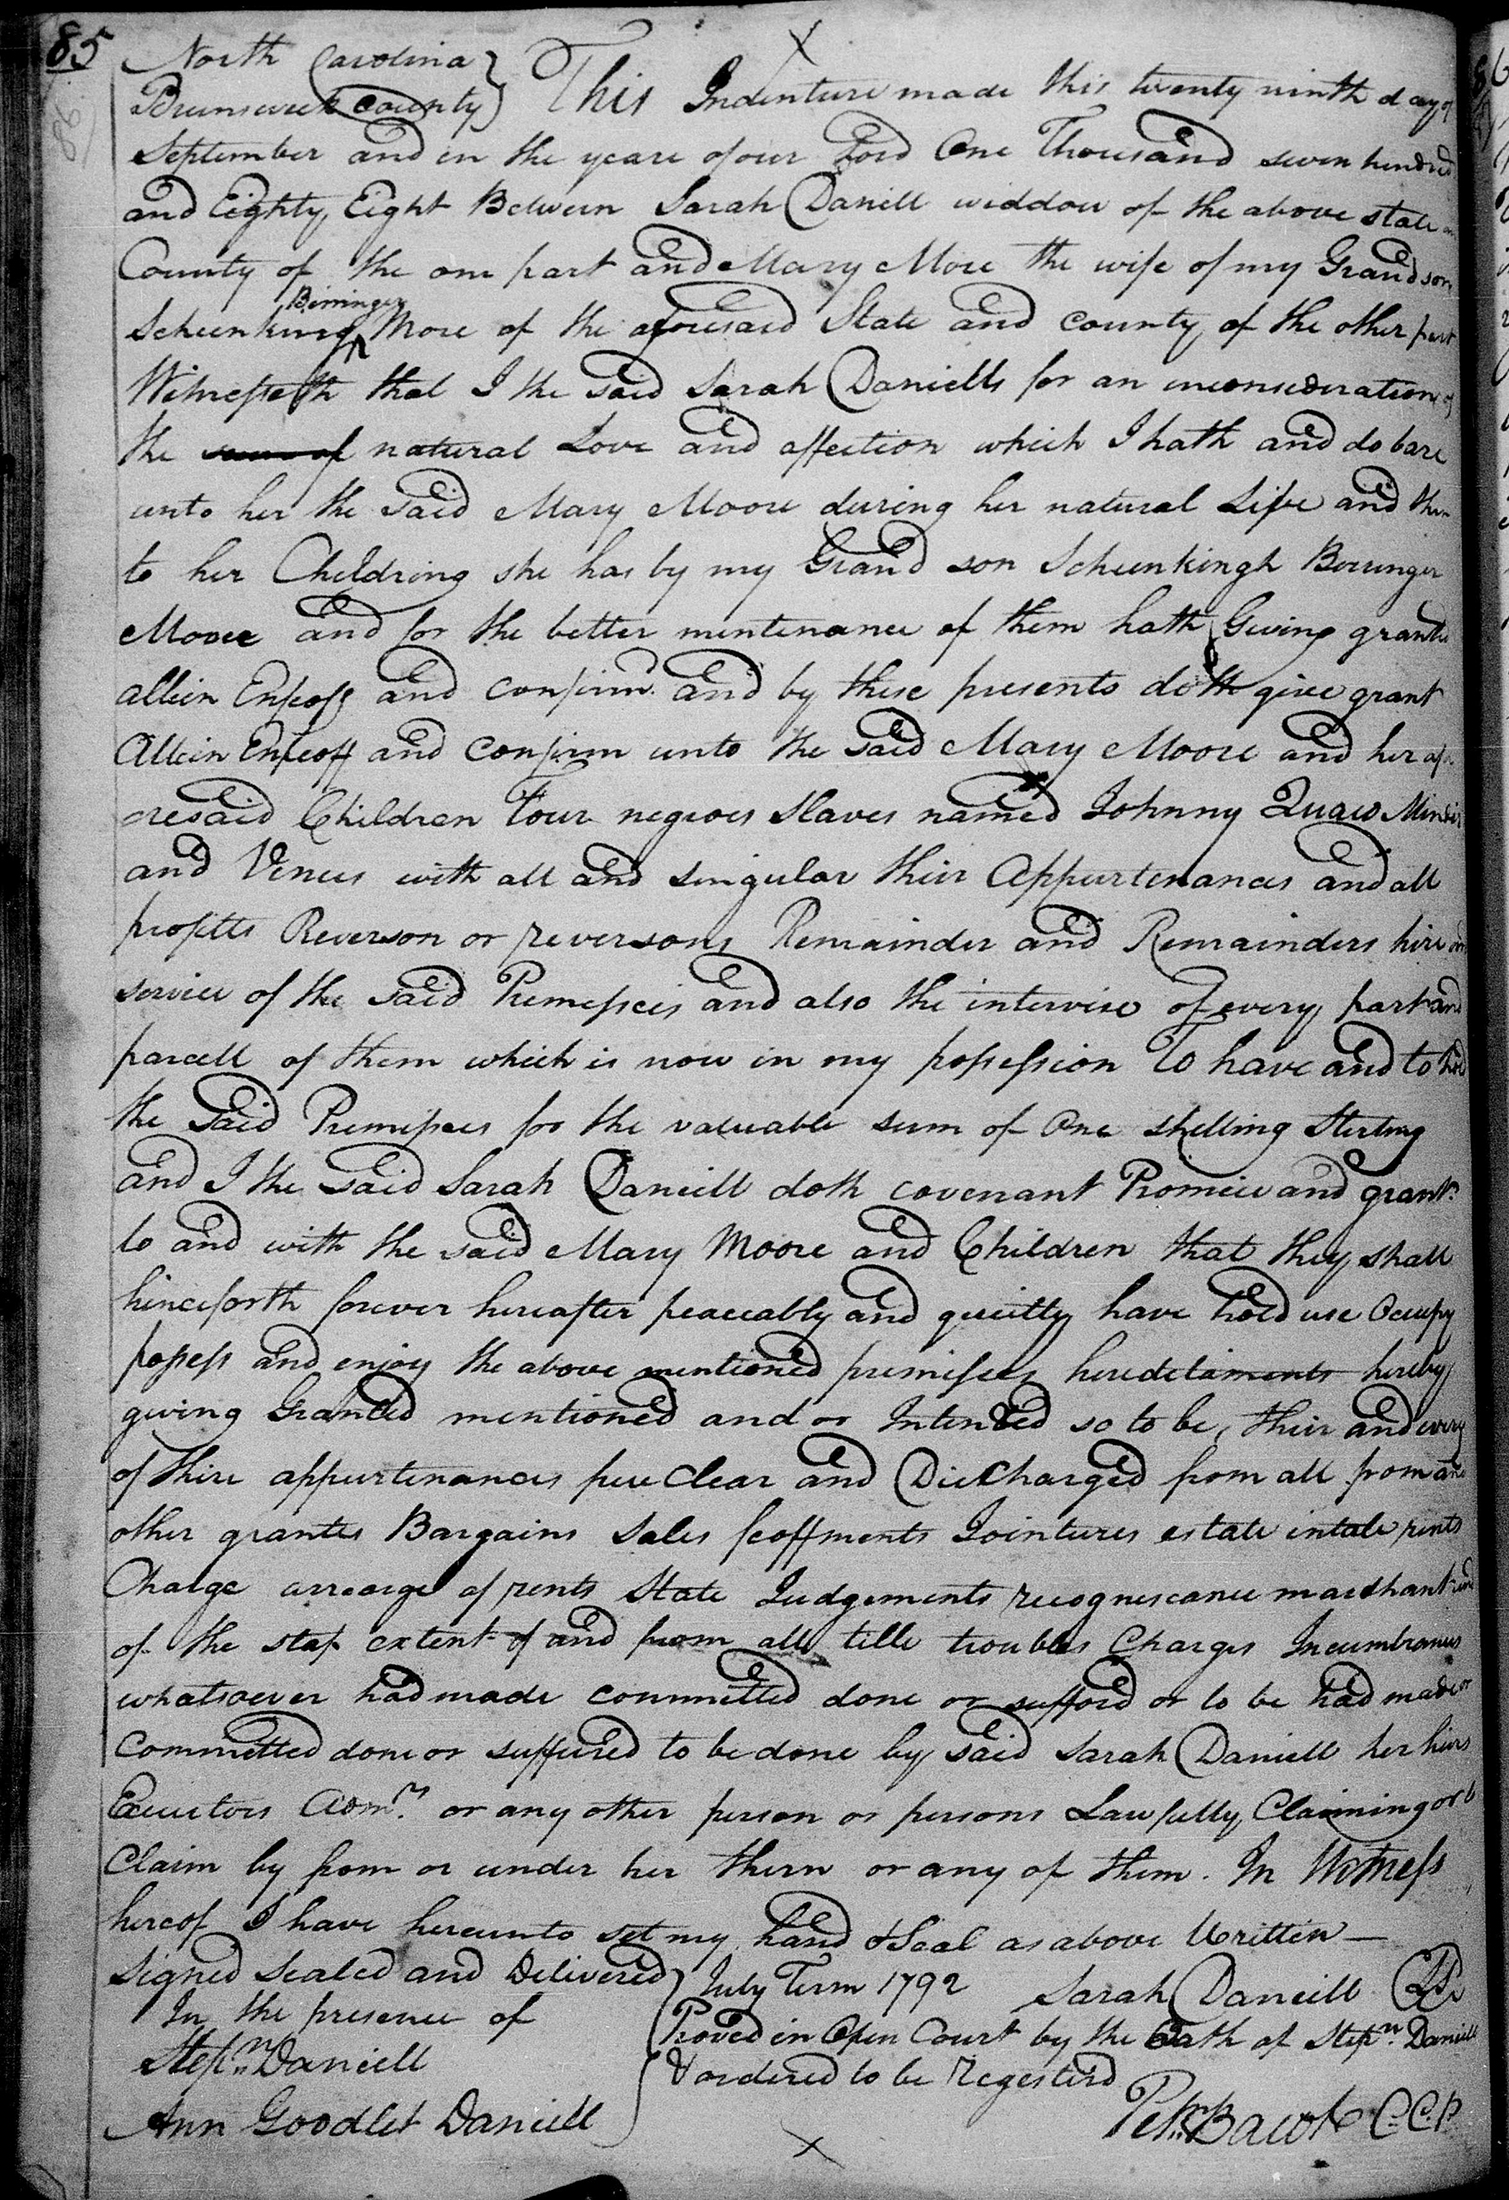 85
86
North Carolina
Brunswick County } This Indenture made this twenty ninth day of
September and in the yeare of our Lord One Thousand seven hundred
and Eighty Eight Between Sarah Daniell widdow of the above state
County of the one part and Mary More the wife of my Grandson
Berringer
Scheenking More of the aforesaid State and County of the other part
Witnesseth that I the said Sarah Daniells for an inconsideration of
the sum of natural Love and affection which I hath and do bare
unto her the said Mary Moore during her natural Life and then
to her Childring she has by my Grand son Scheenkingh Berringer
Moore and for the better mentenance of them hath Giving grante
allein Enfeoff and Confirmd and by these presents doth give grant
Allein Enfeoff and Confirm unto the said Mary Moore and her afo
oresaid Children Four negroes slaves named Johnny Quaw
and Venus with all and singular their Appurtenances and all
profitts Reverson or reversons Remainder and Remainders hire and
service of the said Premesses and also the intervise of every part and
parcell of them which is now in my possession To have and to hold
the said Premises for the valuable sum of One shelling Sterling
and I the said Sarah Daniell doth covenant Promise and grant
to and with the said Mary Moore and Children that they shall
hinceforth forever hereafter peaceably and quietly have hold use Occupy
possess and enjoy the above mentioned premisses heredetaments hereby
giving Granted mentioned and or Intended so to be, their and every
of thire appurtenances free Clear and Discharged from all from and
other grantes Bargains Sales feoffments Jointures estate intale rents
Charge arrearge of rents State Judgements recognescance marchant
of the stap extent of and from all title troubles Charges Incumbrances
whatsoever had made committed done or sufford or to be had made or
Committed done or suffured to be done by said Sarah Daniell her hiers
Executors Admrs or any other person or persons Lawfully Claiming or to
Claim by from or under her them or any of them. In Witness
hereof I have hereunto set my hand & Seal as above Written —
Signed Sealed and Delivered } July Term 1792 Sarah Daniell LS
In the presence of Proved in Open Court by the Oath of Stepn Daniell
Stepn Daniell & ordered to be Regesterd
Ann Goodlet Daniell Petr Bacot C.C.P.